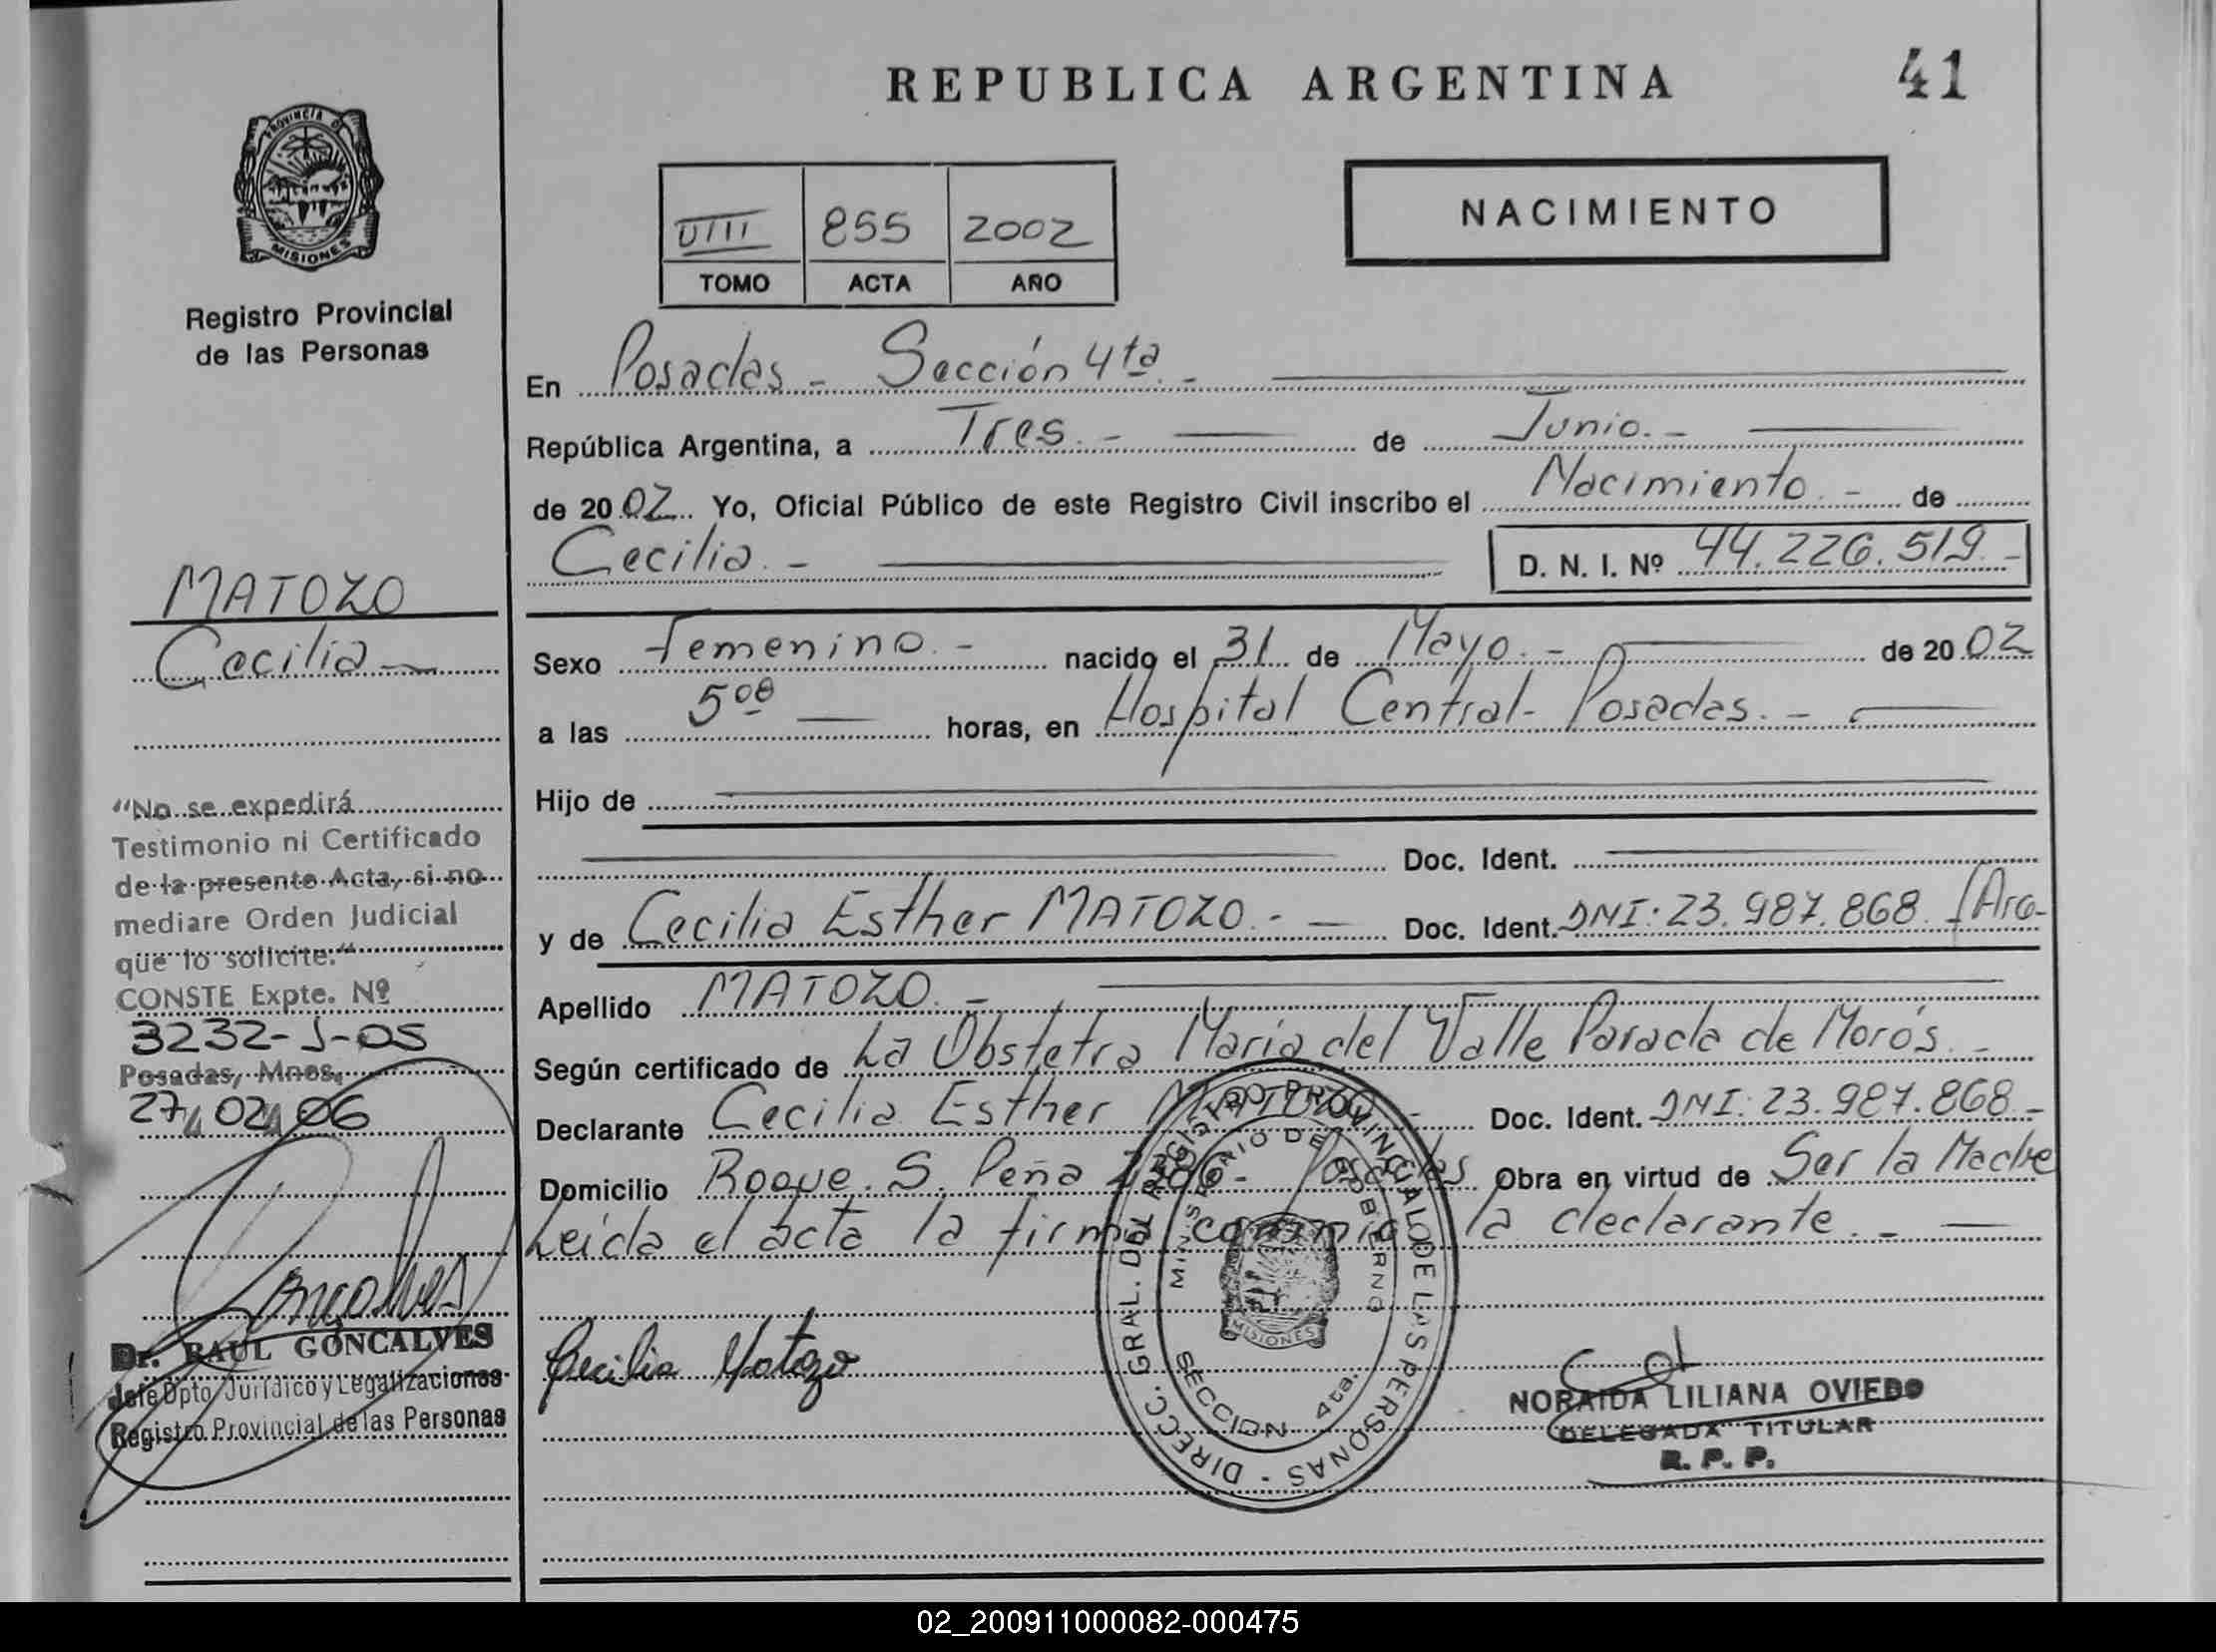 REPUBLICA ARGENTINA
41
PROVINCIA DE
MISIONES
Registro Provincial
de las Personas
VIII 855 2002
TOMO ACTA AÑO
NACIMIENTO
En Posadas - Sección 4ta. -
República Argentina, a Tres. - de Junio. -
de 2002. Yo, Oficial Público de este Registro Civil inscribo el Nacimiento. - de
Cecilia. - D. N. I. Nº 44.226.519. -
Sexo Femenino. - nacido el 31 de Mayo. - de 2002
a las 5 00 horas, en Hospital Central - Posadas. -
Hijo de
Doc. Ident.
y de Cecilia Esther MATOZO. - Doc. Ident. DNI: 23.987.868 (Arg-
Apellido MATOZO. -
Según certificado de La Obstetra María del Valle Parada de Morós. -
Declarante Cecilia Esther MATOZO - Doc. Ident. DNI: 23.987.868. -
Domicilio Roque. S. Peña - Posadas Obra en virtud de Ser la Madre
Leída el acta la firma conmigo la declarante. -
Cecilia Matozo
DIRECC. GRAL. DEL REGISTRO PROVINCIAL DE LAS PERSONAS -
MINISTERIO DE GOBIERNO
MISIONES
SECCION 4ta.
NORAIDA LILIANA OVIEDO
DELEGADA TITULAR
R. P. P.
MATOZO
Cecilia
"No se expedirá
Testimonio ni Certificado
de la presente Acta, si no
mediare Orden Judicial
que lo solicite."
CONSTE Expte. Nº
3232-J-05
Posadas, Mnes.
27 02 06
Dr. RAUL GONCALVES
Jefe Dpto Jurídico y Legalizaciones
Registro Provincial de las Personas
02_200911000082-000475